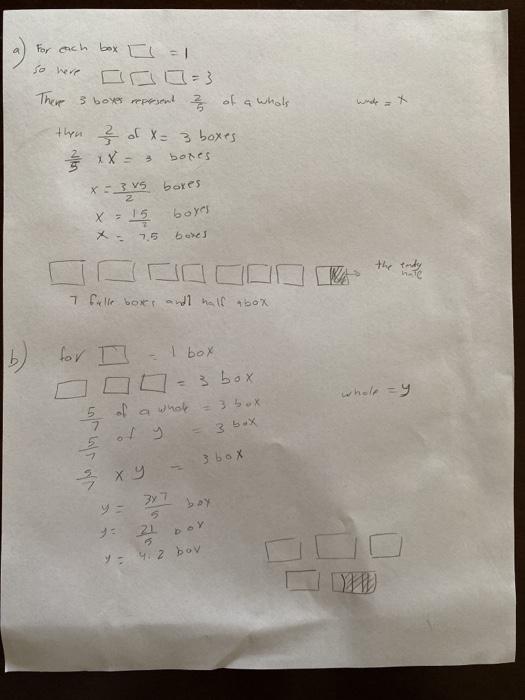 a) For each box □ = 1
So here □ □ □ = 3
There 3 boxes represent 2/5 of a whole
whole = X
then 2/3 of X = 3 boxes
2/5 x X = 3 boxes
X = 3x5/2 boxes
X = 15/2 boxes
X = 7.5 boxes
7 full boxes and half a box
the half
b) for □ = 1 box
□ □ □ = 3 box
whole = y
5/7 of a whole = 3 box
5/7 of y = 3 box
5/7 x y = 3 box
y = 3x7/5 box
y = 21/5 box
y = 4.2 box